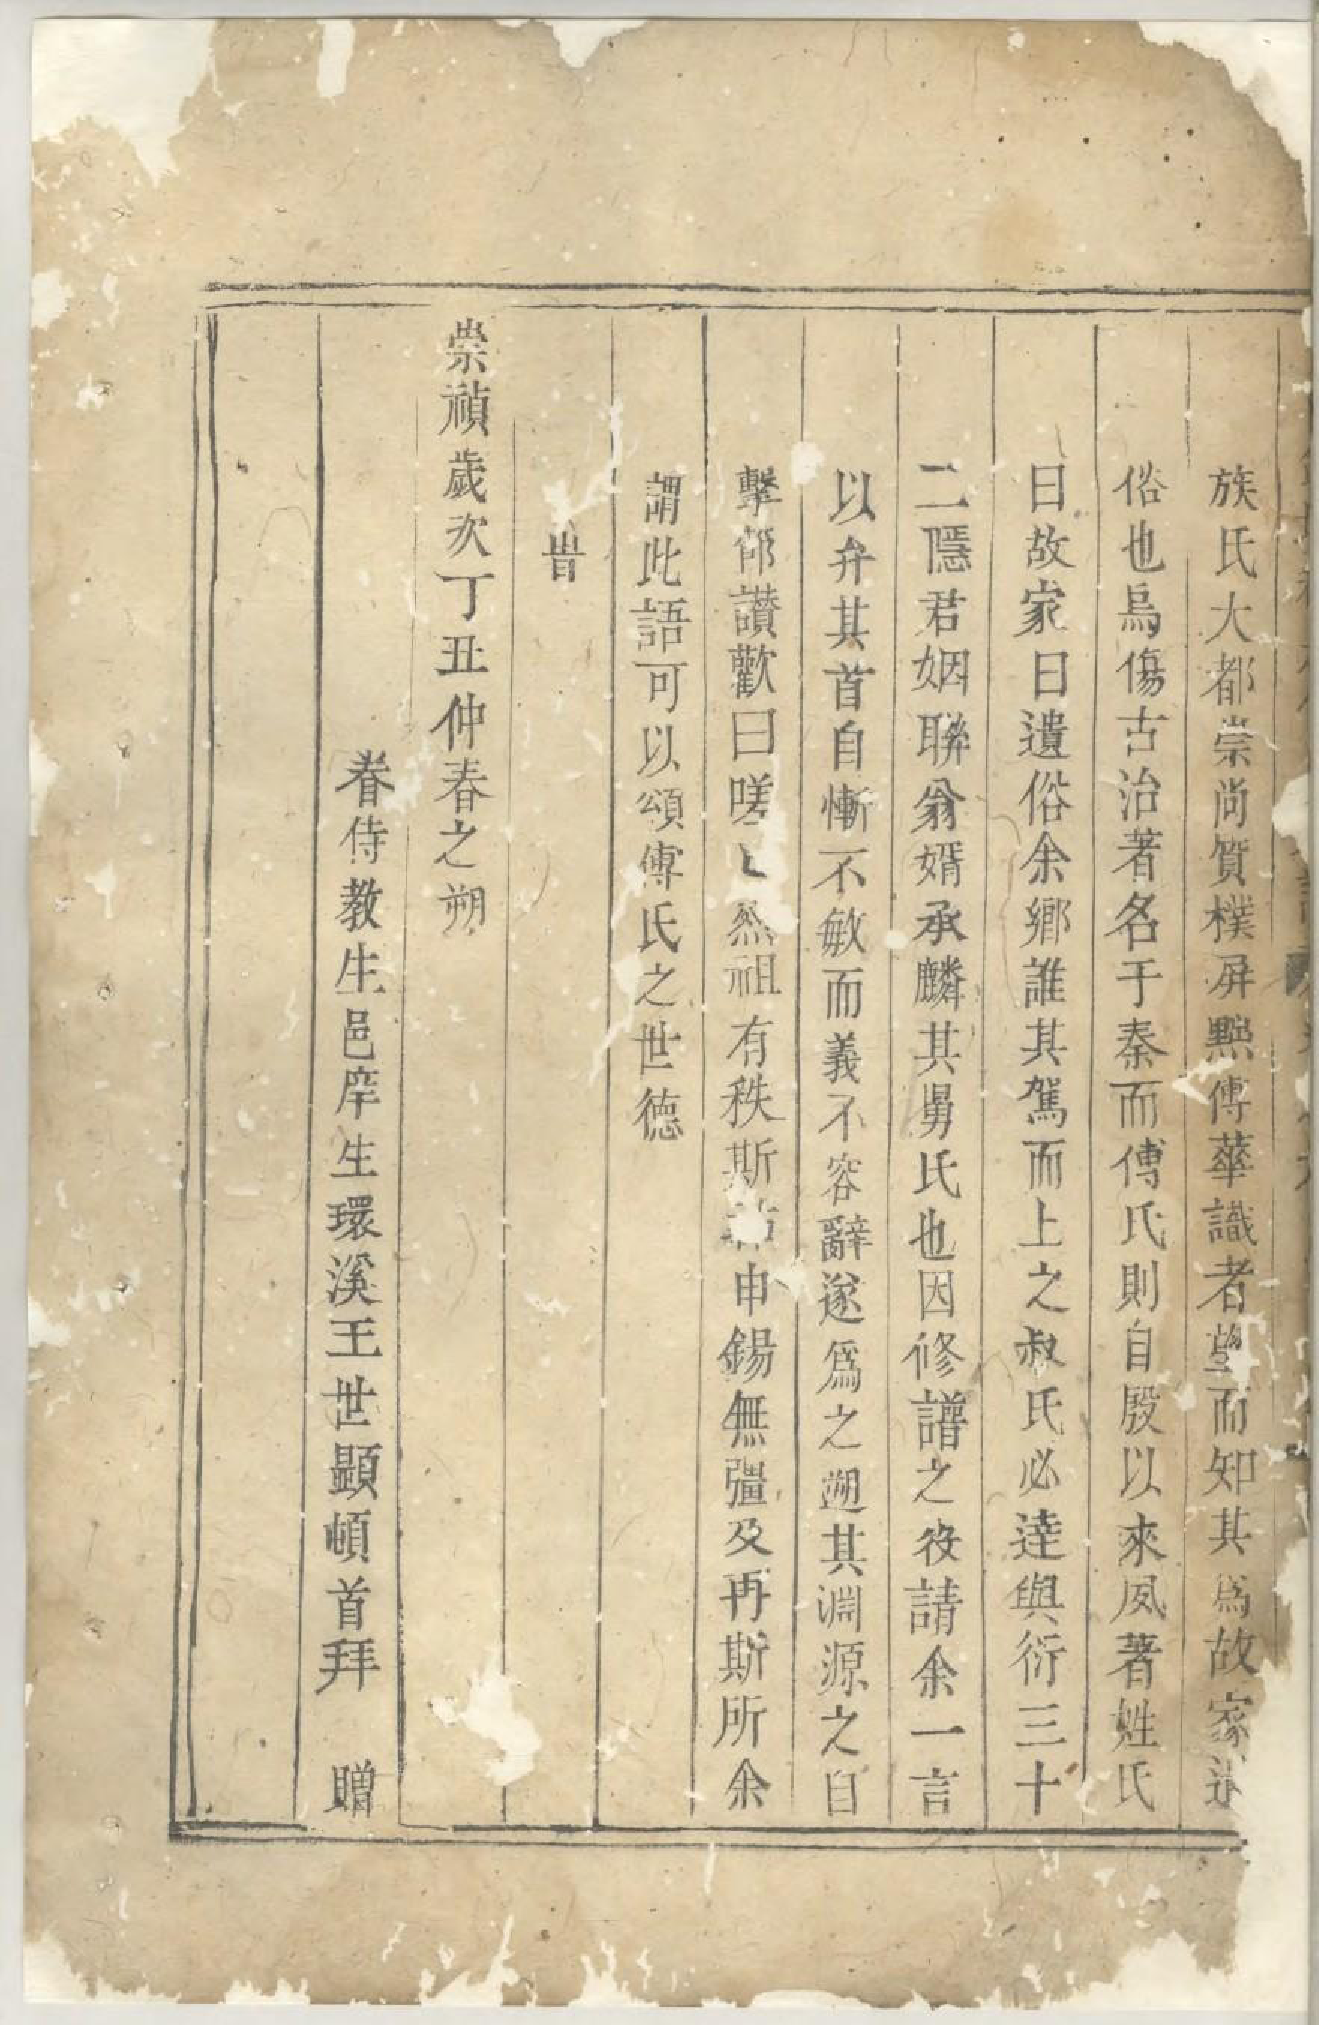 族氏大都崇尚質樸屏黜傅華識者望而知其爲故家遺
俗也烏傷古治著名于秦而傅氏則自殷以來夙著姓氏
曰故家曰遺俗余鄉誰其駕而上之叔氏必達與衍三十
二隱君姻聯翁婿承麟其舅氏也因修譜之役請余一言
以弁其首自慚不敏而義不容辭遂爲之遡其淵源之自
擊節讃歡曰嗟〻烈祖有秩斯祜申錫無彊及再斯所余
謂此語可以頌傅氏之世德
旹
崇禎歲次丁丑仲春之朔
眷侍教生邑庠生環溪王世顯頓首拜 贈